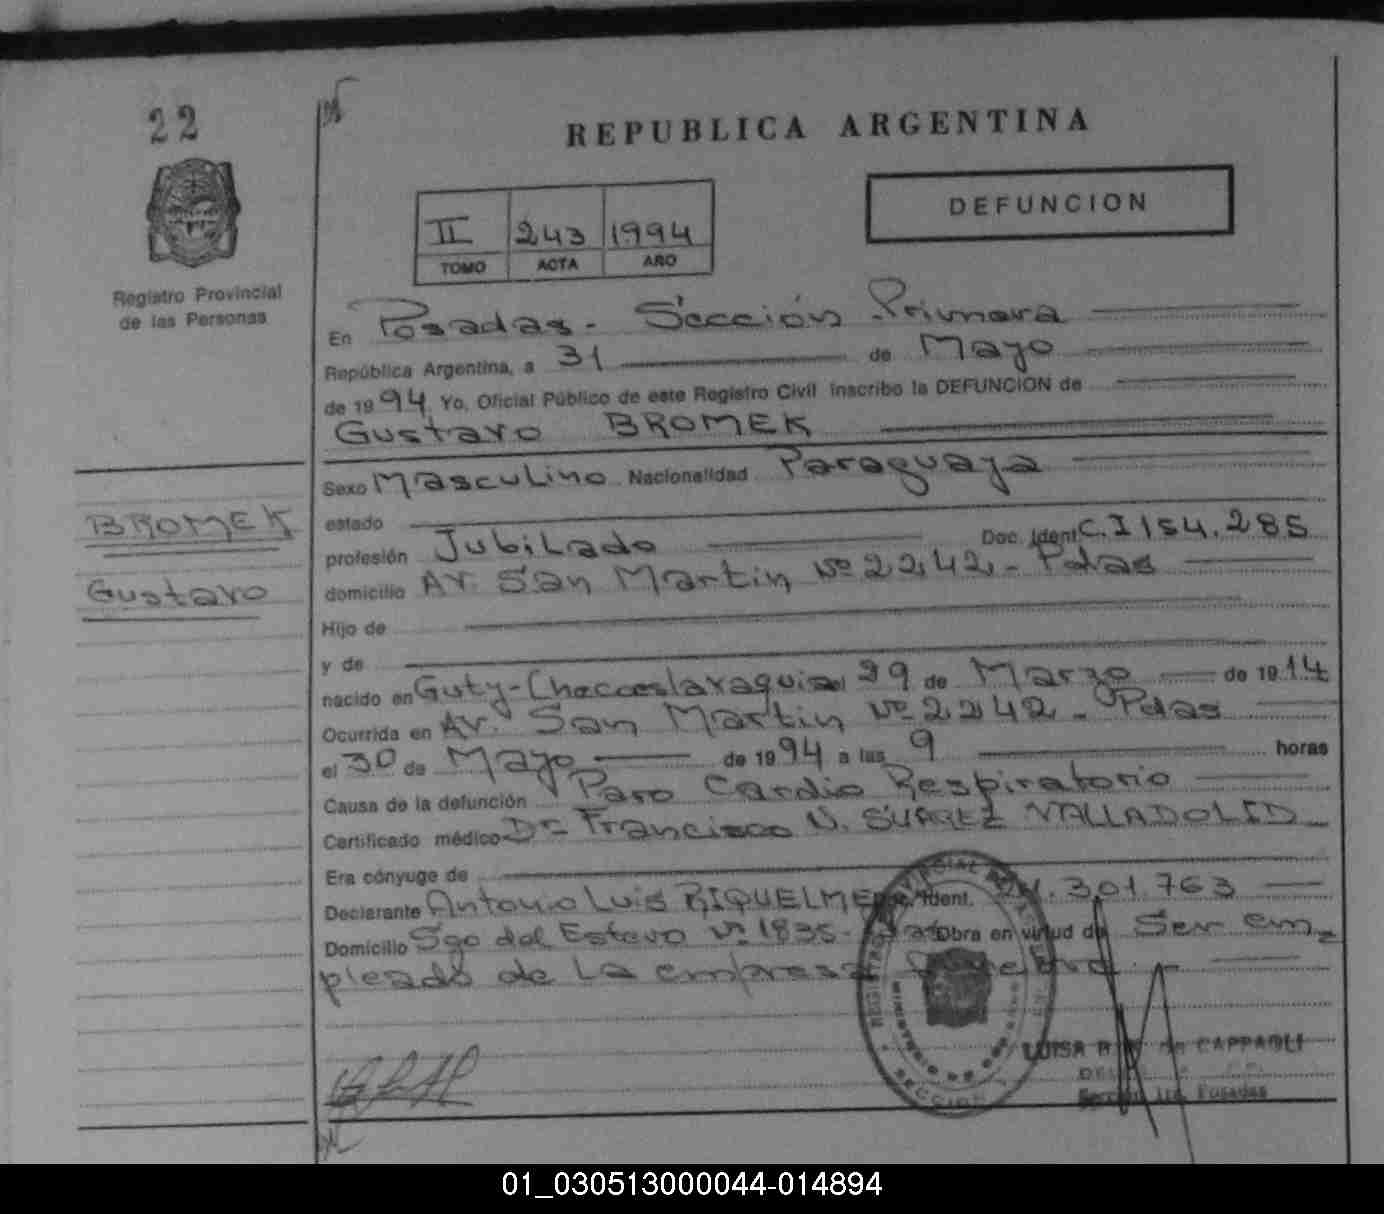 22
REPUBLICA ARGENTINA
DEFUNCION
II 243 1994
TOMO ACTA AÑO
Registro Provincial
de las Personas
En Posadas - Sección Primera
República Argentina, a 31 de Mayo
de 1994 Yo, Oficial Público de este Registro Civil inscribo la DEFUNCION de
Gustavo BROMEK
Sexo Masculino Nacionalidad Paraguaya
estado
BROMEK
profesión Jubilado Doc. Ident. C.I 154.285
Gustavo
domicilio Av. San Martin Nº 2242 - Pdas
Hijo de
y de
nacido en Guty- el 29 de Marzo de 1914
Ocurrida en Av. San Martin Nº 2242 - Pdas
el 30 de Mayo de 1994 a las 9 horas
Causa de la defunción Paro Cardio Respiratorio
Certificado médico Dr Francisco N. SUAREZ VALLADOLID
Era cónyuge de
Declarante Antonio Luis RIQUELME Doc. Ident. 301.763
Domicilio Sgo del Estero Nº 1835 - Pdas Obra en virtud de Ser em-
pleado de la empresa
LUISA CAPPADLI
Sección 1ra. Posadas
SECCION
01_030513000044-014894